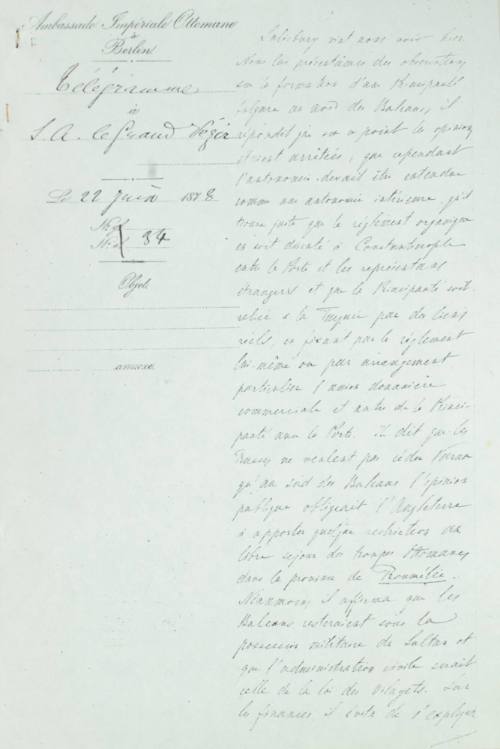 Ambassade Impériale Ottomane
à
Berlin
Télégramme
à
S. A. le Grand Vézir
Le 22 Juin 1878
34
Objet
annexe
Salisbury vint nous voir hier
Nous lui présentâmes des observations
sur la formation d'une Principauté
Bulgare au nord des Balcans, il
répondit que sur ce point les opinions
étaient arrêtées, que cependant
l'autonomie devait être entendue
comme une autonomie intérieure, qu'il
trouve juste que le règlement organique
en soit discuté à Constantinople
entre la Porte et les représentans
étrangers et que la Principauté soit
reliée à la Turquie par des liens
réels, en fixant par le règlement
lui-même ou par arrangement
particulier l'union douanière
commerciale et autre de la Princi-
pauté avec la Porte. Il dit que les
Russes ne veulent pas céder Varna
qu'au sud des Balcans l'opinion
publique obligeait l'Angleterre
à apporter quelque restriction au
libre séjour des troupes Ottomanes
dans la province de Roumélie.
Néanmoins il affirma que les
Balcans resteraient sous la
possession militaire du Sultan et
que l'administration civile serait
celle de la loi des Vilayets. Sur
les finances, il évita de s'expliquer